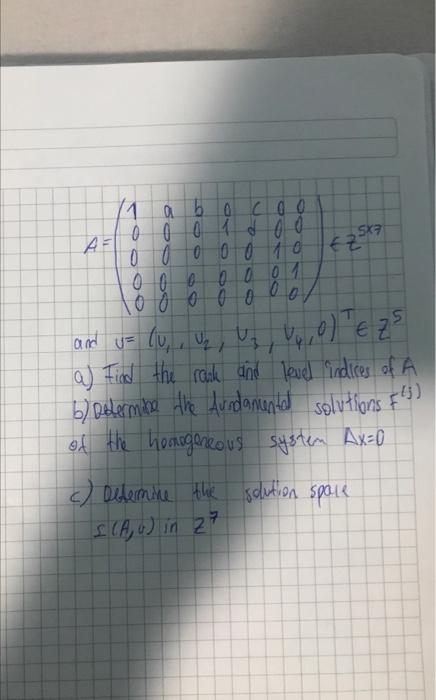 1 a b 0 c 0 0
0 0 0 1 d 0 0
A = 0 0 0 0 0 1 0 ∈ Z^5x7
0 0 0 0 0 0 1
0 0 0 0 0 0 0
and v = (v₁, v₂, v₃, v₄, 0)^T ∈ Z^5
a) Find the rank and level indices of A
b) Determine the fundamental solutions F^(j)
of the homogeneous system Ax=0
c) Determine the solution space
I(A,v) in Z^7